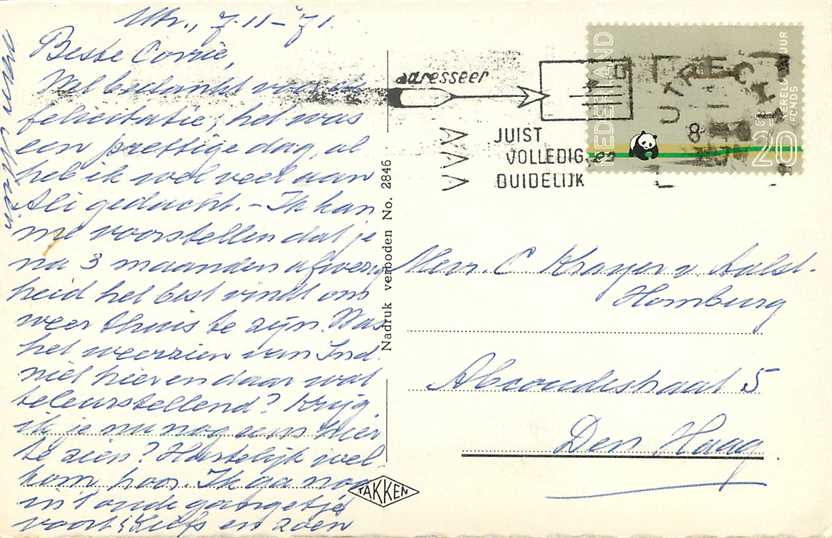 Utr., 7-11-'71.
Beste Corrie,
Wel bedankt voor de
felicitatie; het was
een prettige dag, al
heb ik wel veel aan
Ali gedacht. - Ik kan
me voorstellen dat je
na 3 maanden afwezig
heid het best vindt om
weer thuis te zijn. Was
het weerzien van Ind
niet hier en daar wat
teleurstellend? Krijg
ik je nu nog eens hier
te zien? Hartelijk wel
kom hoor. Ik ga nog
in 't oude gangetje
voort. Liefs en zoen
Nadruk verboden No. 2846
TAKKEN
adresseer
JUIST
VOLLEDIG en
DUIDELIJK
UTRECHT
8
NEDERLAND
20
FONDS
Mevr. C Krayer v. Aalst-
Homburg
Abcoudestraat 5
Den Haag